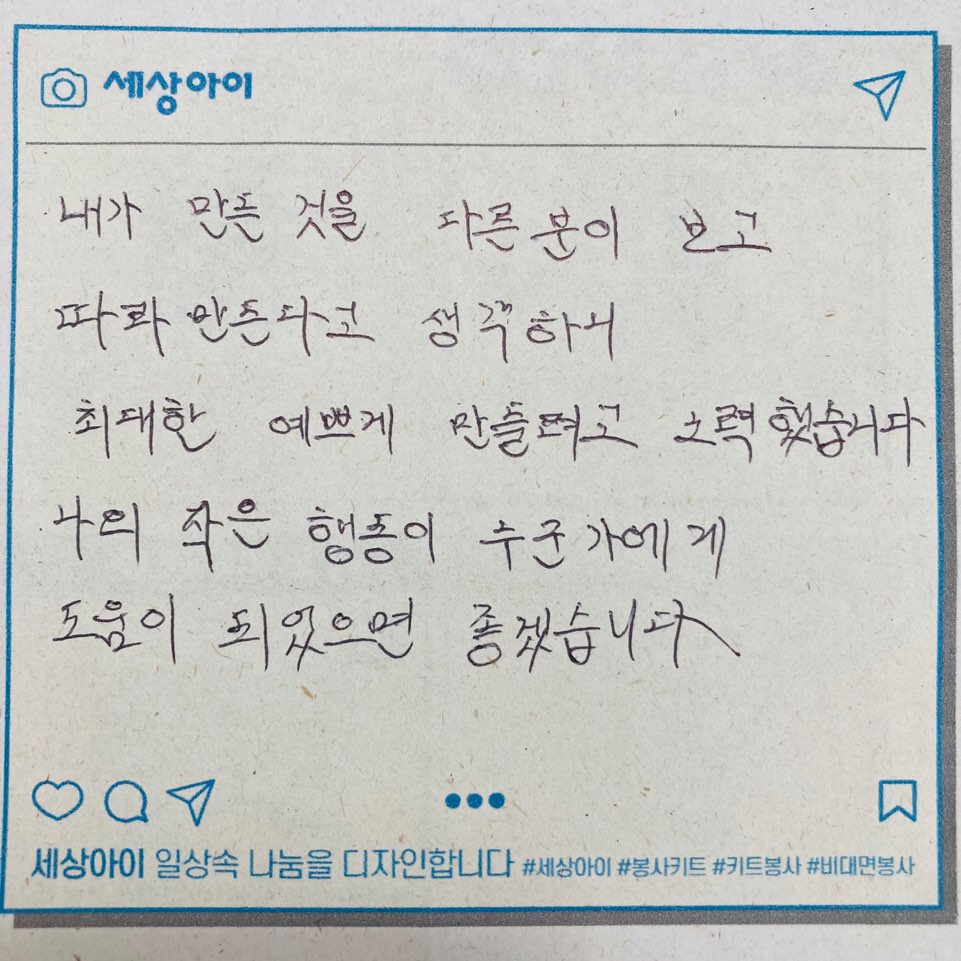 세상아이
내가 만든 것을 다른 분이 보고
따라 만든다고 생각하니
최대한 예쁘게 만들려고 노력했습니다
나의 작은 행동이 누군가에게
도움이 되었으면 좋겠습니다
세상아이 일상속 나눔을 디자인합니다 #세상아이 #봉사키트 #키트봉사 #비대면봉사